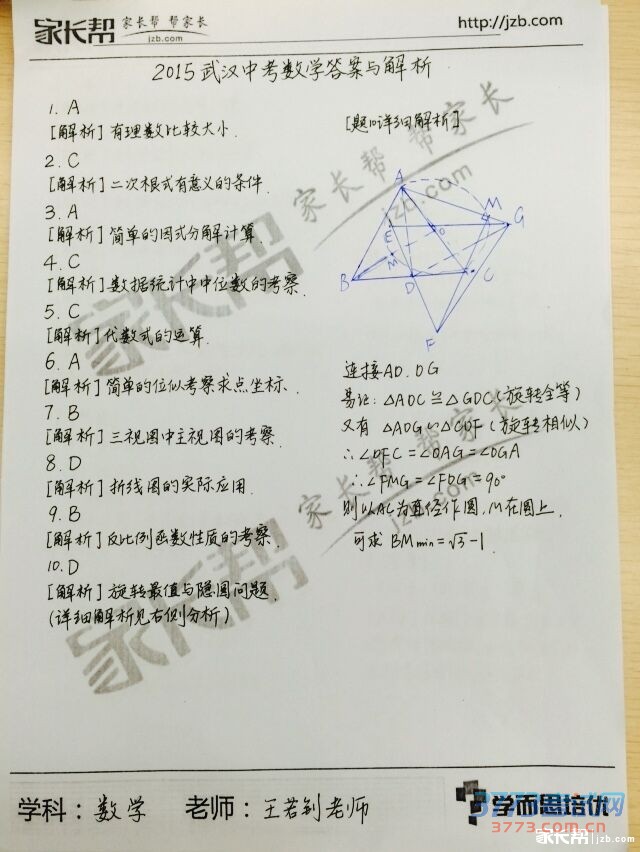 家长帮 家长帮 帮家长
jzb.com
http://jzb.com
2015武汉中考数学答案与解析
1. A
[解析] 有理数比较大小.
2. C
[解析] 二次根式有意义的条件.
3. A
[解析] 简单的因式分解计算.
4. C
[解析] 数据统计中中位数的考察.
5. C
[解析] 代数式的运算.
6. A
[解析] 简单的位似考察求点坐标.
7. B
[解析] 三视图中主视图的考察.
8. D
[解析] 折线图的实际应用.
9. B
[解析] 反比例函数性质的考察.
10. D
[解析] 旋转最值与隐圆问题.
(详细解析见右侧分析)
[题10详细解析]
A
M
E
O
G
M
B
D
C
F
连接AD.DG
易证: △ADC≌△GDC(旋转全等)
又有 △ADG∽△CDF(旋转相似)
∴∠DFC=∠DAG=∠DGA
∴∠FMG=∠FDG=90°
则以AC为直径作圆,M在圆上.
可求 BMmin=√3-1.
家长帮 家长帮 帮家长
jzb.com
家长帮 家长帮 帮家长
jzb.com
学科: 数学 老师: 王若钊老师
学而思培优
3773.com.cn
家长帮 jzb.com